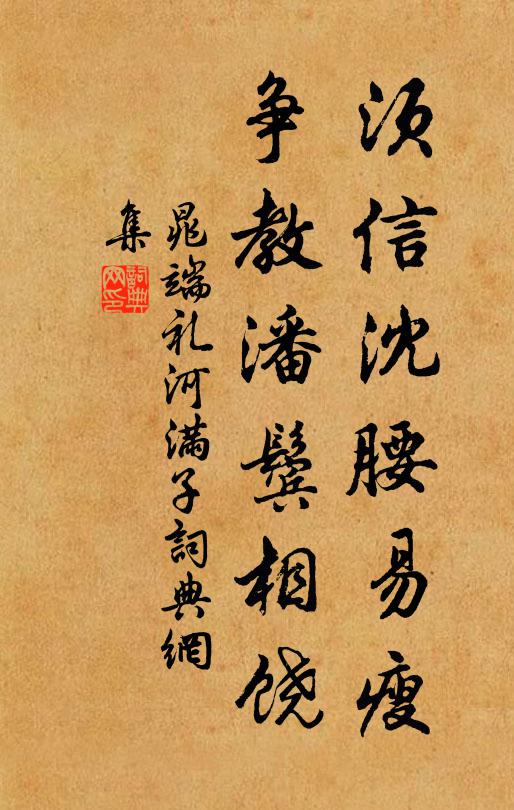 须信沈腰易瘦
争教潘鬓相饶
晁端礼河满子词典網
集
詞典网印